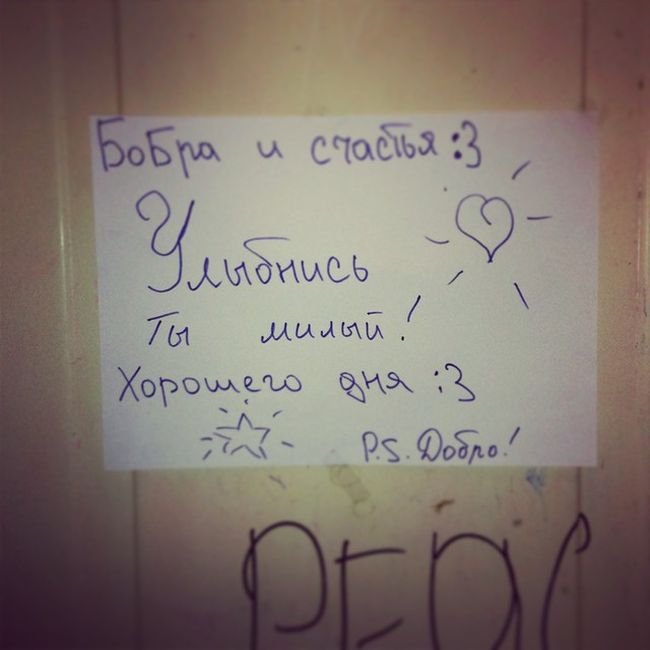 БоБра и счастья :3
Улыбнись
ты милый!
Хорошего дня :3
P.S. Добро!